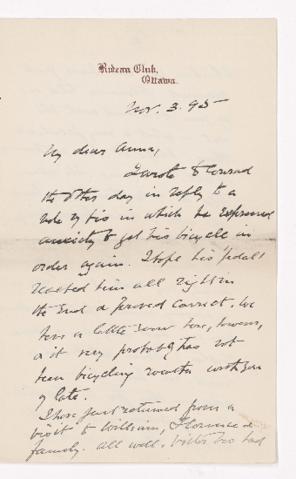 Rideau Club,
Ottawa.
Nov. 3. 95
My dear Anna,
I wrote to Conrad
the other day in reply to a
note of his in which he expressed
anxiety to get his bicycle in
order again. I hope his pedals
reached him all right in
the end & proved correct. We
have a little snow here, however,
& it very probably has not
been bicycling weather with you
of late.
I have just returned from a
visit to William, Florence &
family. All well.